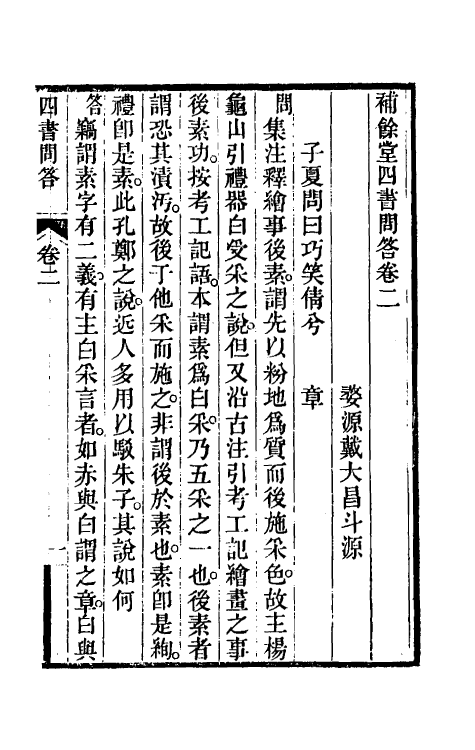 補餘堂四書問答卷二
婺源戴大昌斗源
子夏問曰巧笑倩兮　章
問集注釋繪事後素。謂先以粉地爲質而後施采色。故主楊
龜山引禮器白受采之說。但又沿古注引考工記繪畫之事
後素功。按考工記語。本謂素爲白采。乃五采之一也。後素者
謂恐其漬汚。故後于他采而施之。非謂後於素也。素卽是絢。
禮卽是素。此孔鄭之說。近人多用以駁朱子。其說如何
答竊謂素字有二義。有主白采言者。如赤與白謂之章。白與
四書問答　卷二　一